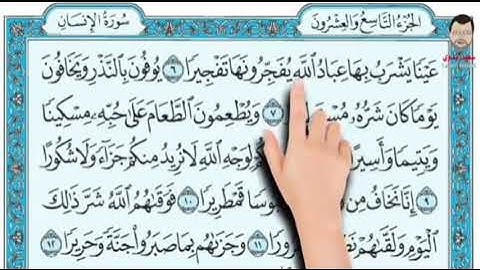 الجُزْءُ التَّاسِعُ وَالعِشْرُونَ
سُورَةُ الإِنسَانِ
عَيْنًا يَشْرَبُ بِهَا عِبَادُ ٱللَّهِ يُفَجِّرُونَهَا تَفْجِيرًا ٦ يُوفُونَ بِٱلنَّذْرِ وَيَخَافُونَ
يَوْمًا كَانَ شَرُّهُۥ ٧ وَيُطْعِمُونَ ٱلطَّعَامَ عَلَىٰ حُبِّهِۦ مِسْكِينًا
وَيَتِيمًا وَأَسِيرًا لِوَجْهِ ٱللَّهِ لَا نُرِيدُ مِنكُمْ جَزَآءً وَلَا شُكُورًا
٩ إِنَّا نَخَافُ مِن قَمْطَرِيرًا ١٠ فَوَقَىٰهُمُ ٱللَّهُ شَرَّ ذَٰلِكَ
ٱلْيَوْمِ وَلَقَّىٰهُمْ ١١ وَجَزَىٰهُم بِمَا صَبَرُوا۟ جَنَّةً وَحَرِيرًا ١٢